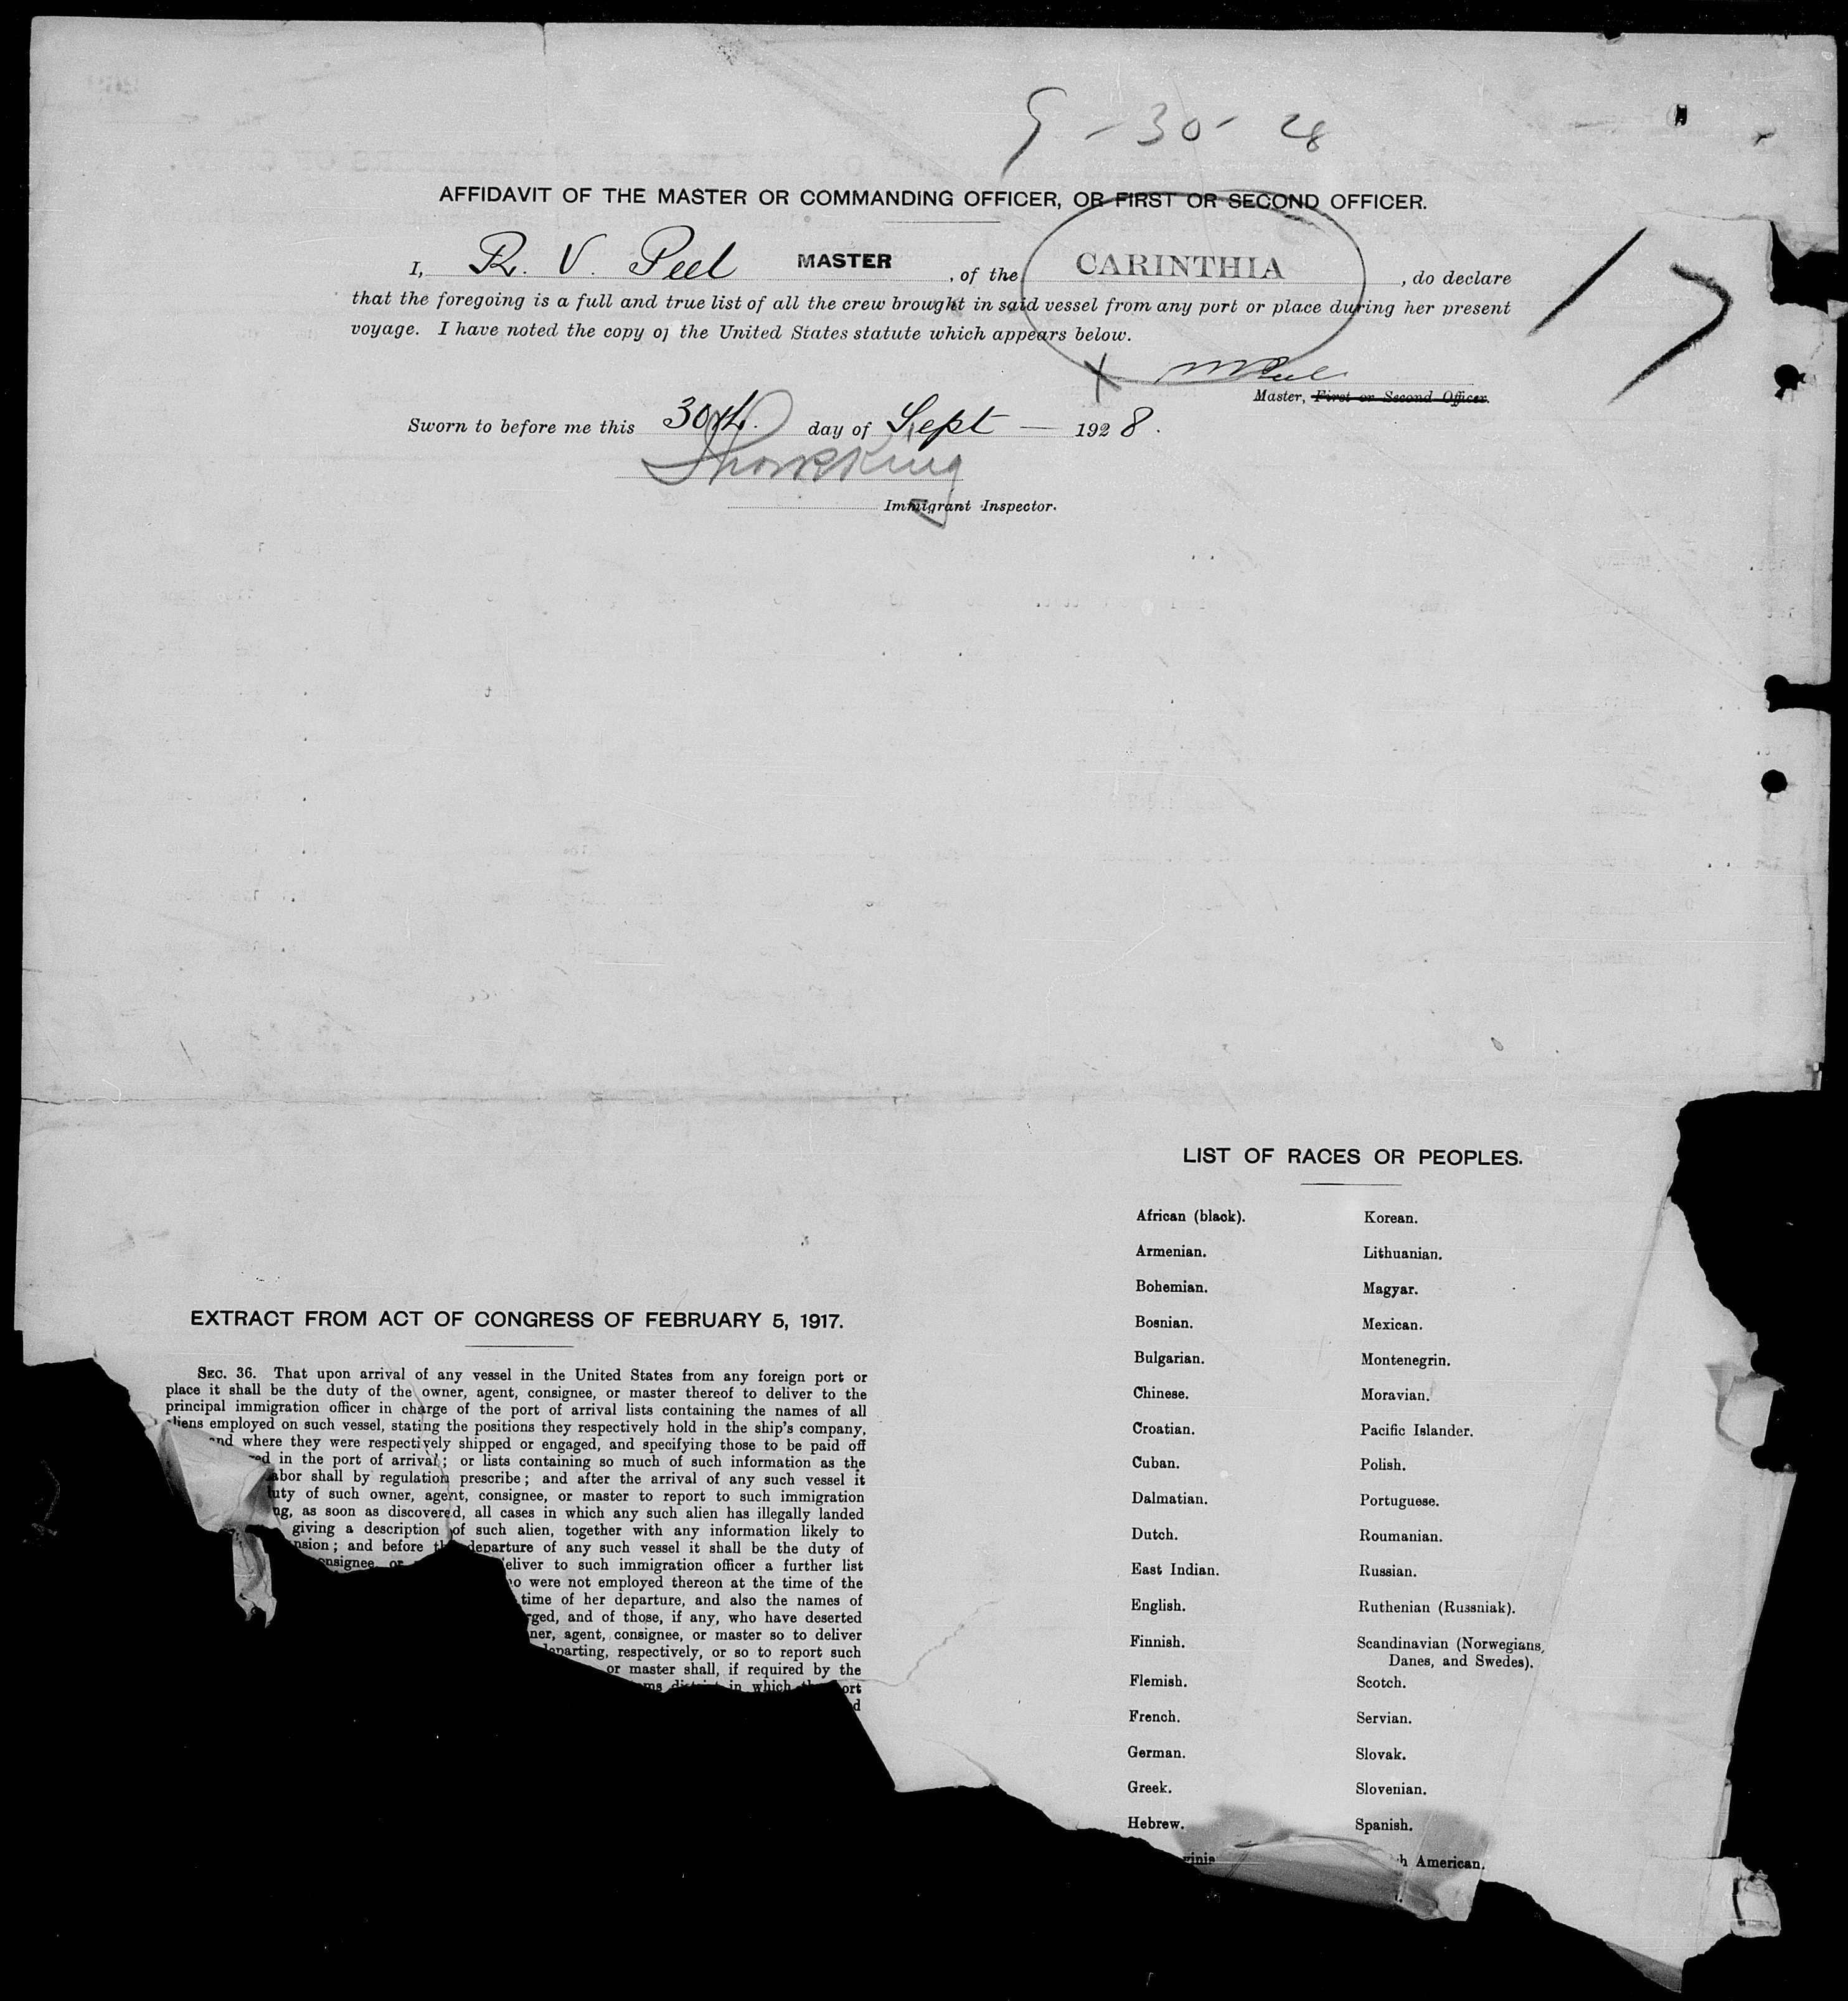 9-30-28
AFFIDAVIT OF THE MASTER OR COMMANDING OFFICER, OR FIRST OR SECOND OFFICER.
I, R. V. Peel MASTER, of the CARINTHIA, do declare
that the foregoing is a full and true list of all the crew brought in said vessel from any port or place during her present
voyage. I have noted the copy of the United States statute which appears below.
17
X
Master, First or Second Officer.
Sworn to before me this 30th. day of Sept — 1928.
Immigrant Inspector.
EXTRACT FROM ACT OF CONGRESS OF FEBRUARY 5, 1917.
SEC. 36. That upon arrival of any vessel in the United States from any foreign port or
place it shall be the duty of the owner, agent, consignee, or master thereof to deliver to the
principal immigration officer in charge of the port of arrival lists containing the names of all
aliens employed on such vessel, stating the positions they respectively hold in the ship's company,
and where they were respectively shipped or engaged, and specifying those to be paid off
in the port of arrival; or lists containing so much of such information as the
abor shall by regulation prescribe; and after the arrival of any such vessel it
uty of such owner, agent, consignee, or master to report to such immigration
ng, as soon as discovered, all cases in which any such alien has illegally landed
giving a description of such alien, together with any information likely to
nsion; and before the departure of any such vessel it shall be the duty of
onsignee or eliver to such immigration officer a further list
o were not employed thereon at the time of the
time of her departure, and also the names of
rged, and of those, if any, who have deserted
ner, agent, consignee, or master so to deliver
departing, respectively, or so to report such
or master shall, if required by the
ms district in which the port
d
LIST OF RACES OR PEOPLES.
African (black).
Armenian.
Bohemian.
Bosnian.
Bulgarian.
Chinese.
Croatian.
Cuban.
Dalmatian.
Dutch.
East Indian.
English.
Finnish.
Flemish.
French.
German.
Greek.
Hebrew.
Korean.
Lithuanian.
Magyar.
Mexican.
Montenegrin.
Moravian.
Pacific Islander.
Polish.
Portuguese.
Roumanian.
Russian.
Ruthenian (Russniak).
Scandinavian (Norwegians,
Danes, and Swedes).
Scotch.
Servian.
Slovak.
Slovenian.
Spanish.
h American.